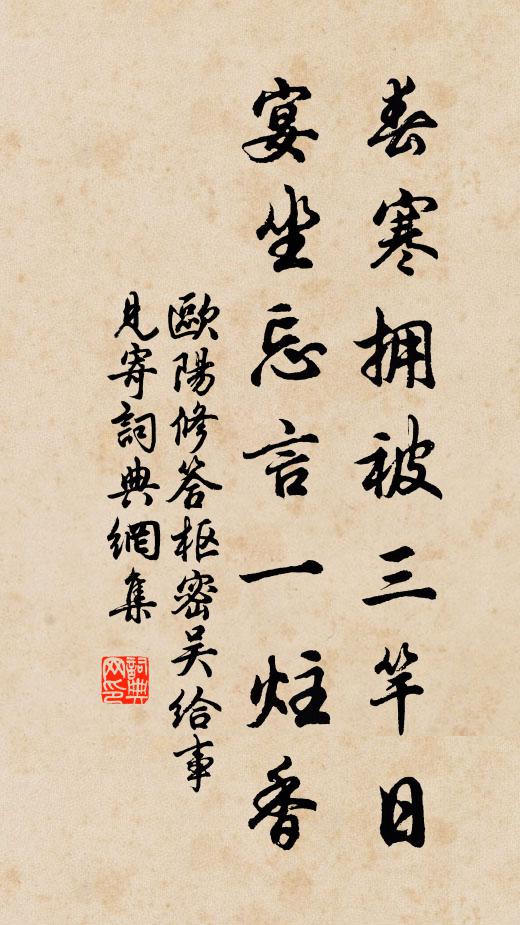 春寒拥被三竿日
宴坐忘言一炷香
歐陽修答枢密吴给事
見寄詞典網集
詞典网印